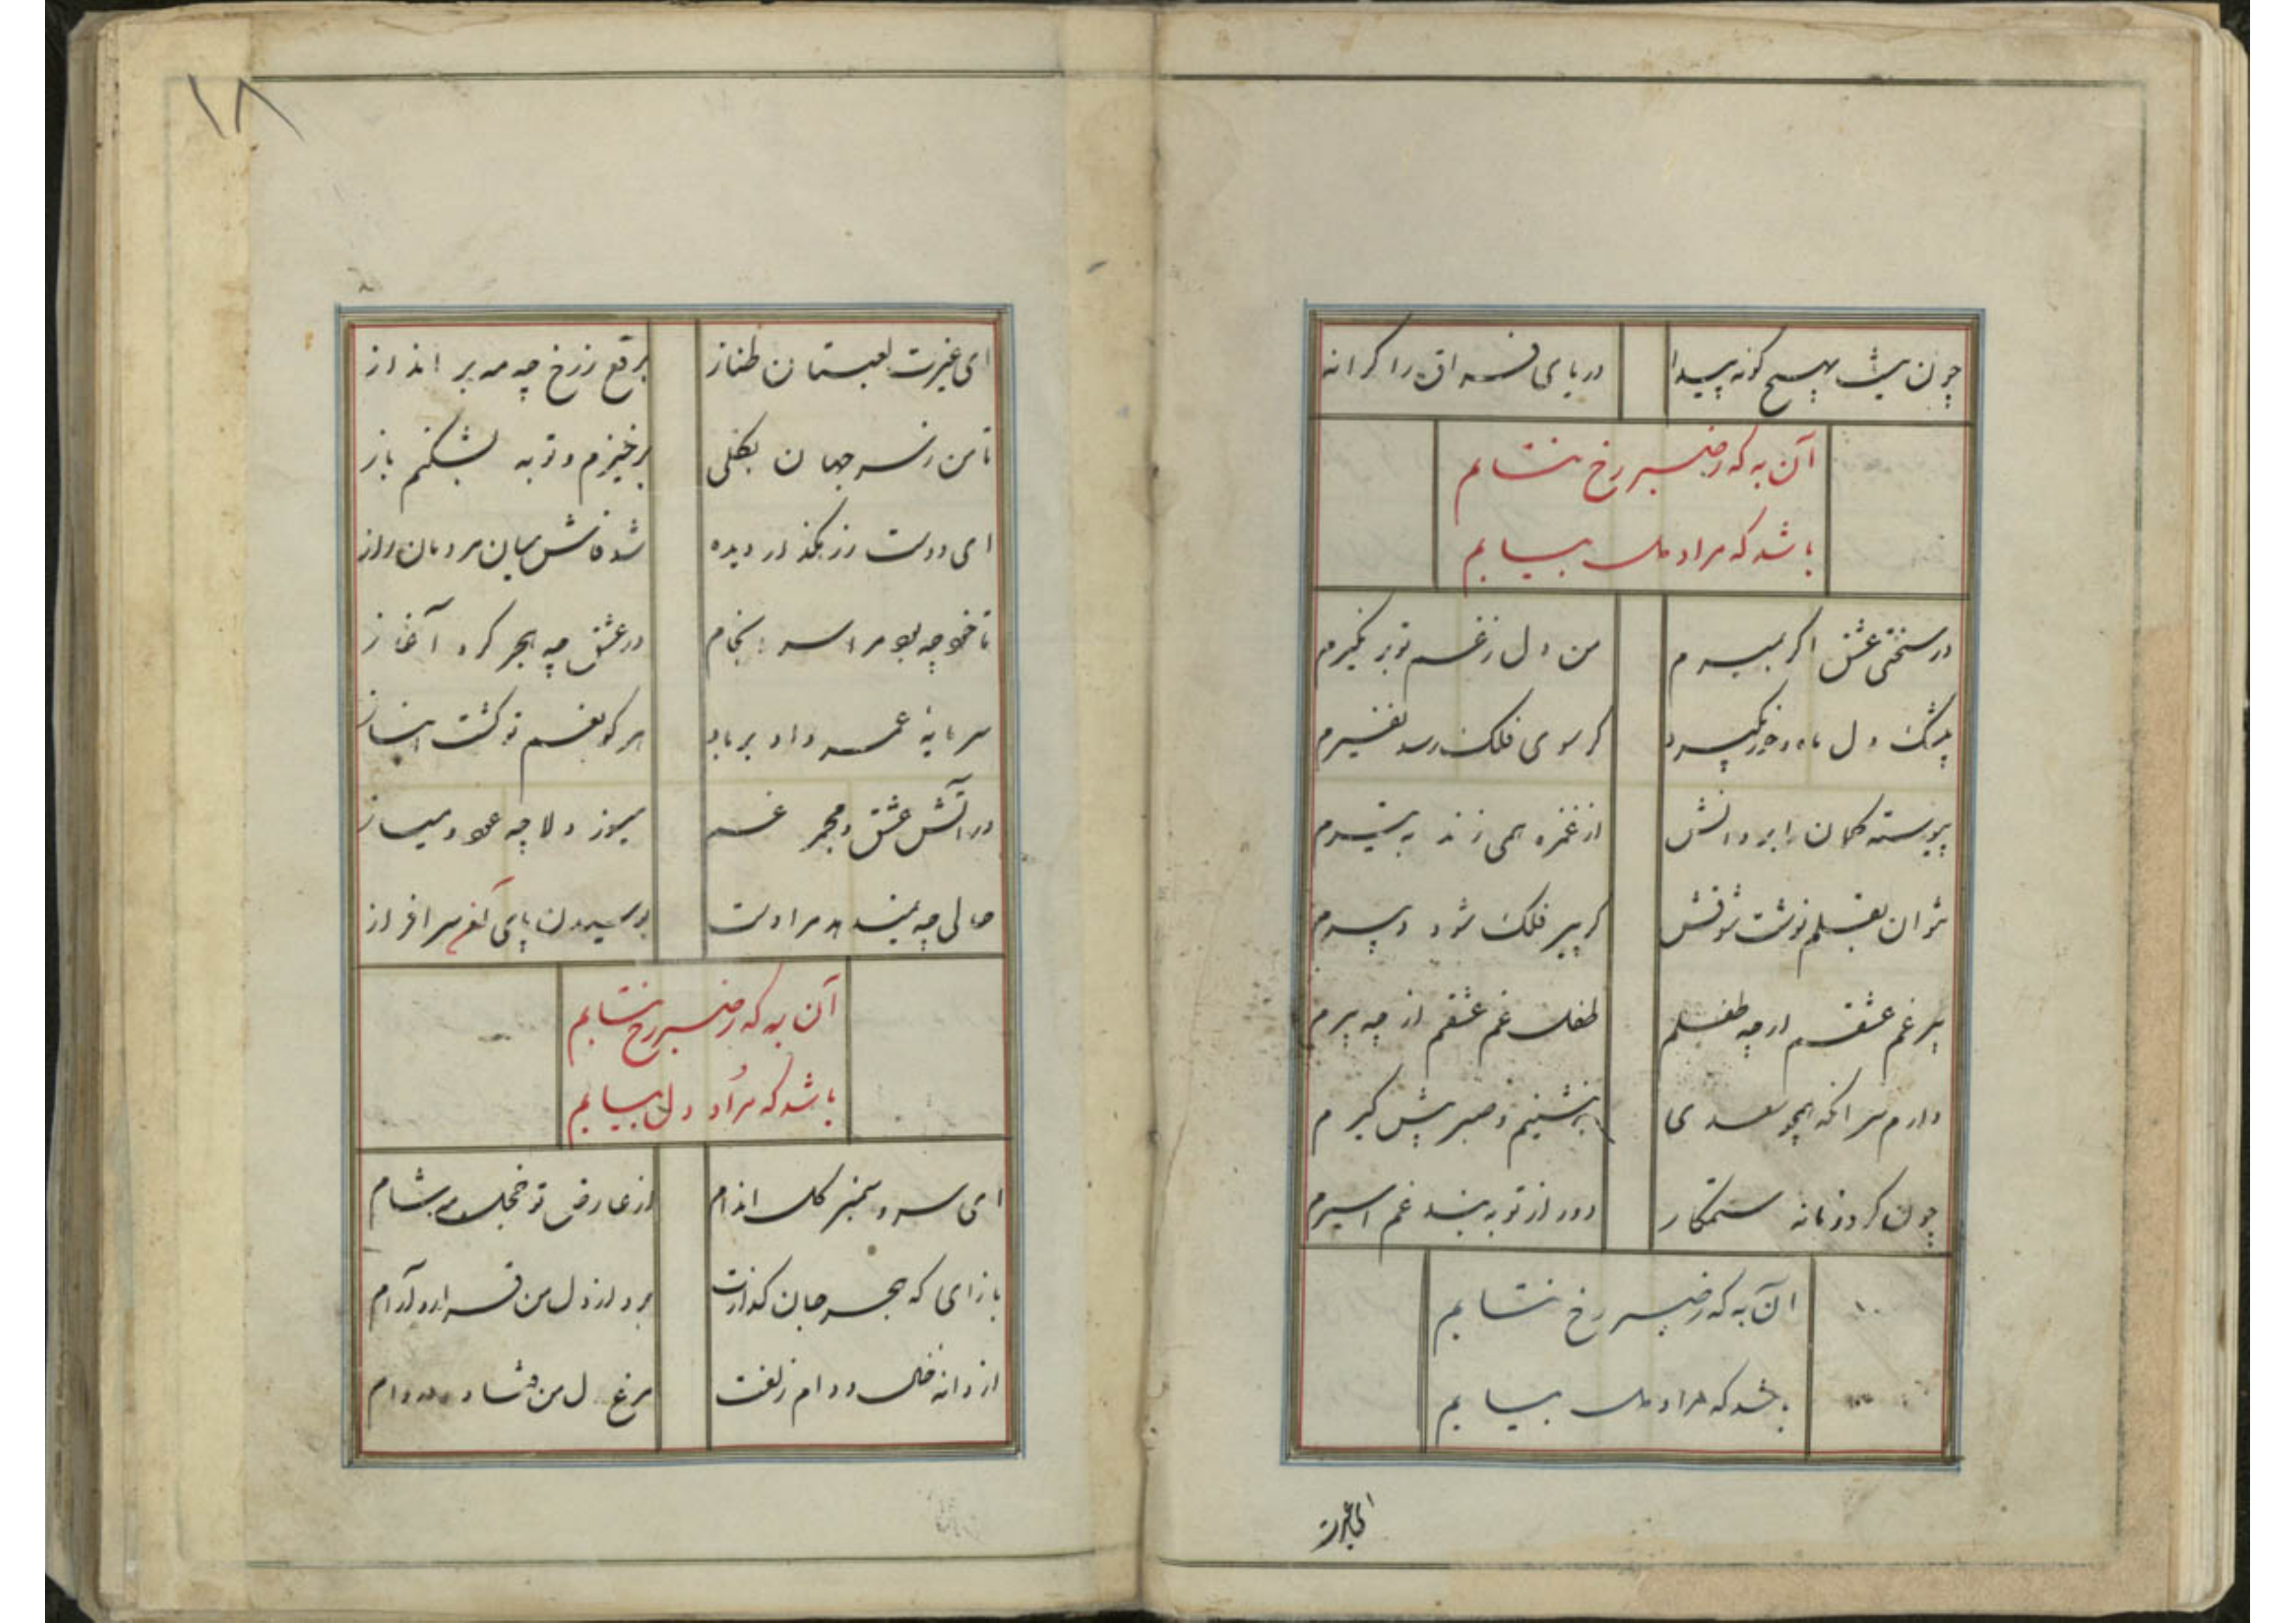 چون نیست بهیچ گونه پیدا دریای فراق را کرانه
آن به که ز صبر رخ نتابم
باشد که مراد دل بیابم
در سختی عشق اگر بمیرم من دل ز غم تو بر نگیرم
بیشک دل ماه و خور بگیرد گر سوی فلک رسد نفیرم
پیوسته کمان ابروانش از غمزه همی زند به تیرم
نتوان بقلم نوشت شوقش گر پیر فلک شود دبیرم
پیر غم عشقم ار چه طفلم طفل غم عشقم ار چه پیرم
دارم سر آنکه همچو سعدی بنشینم و صبر پیش گیرم
چون کرد زمانه ستمکار دور از تو به بند غم اسیرم
آن به که ز صبر رخ نتابم
باشد که مراد دل بیابم
ای غیرت
۱۸
ای غیرت لعبتان طناز برقع ز رخ چه مه بر انداز
تا من ز سر جهان بکلی برخیزم و توبه بشکنم باز
ای دوست ز رهگذار دیده شد فاش میان مردمان راز
تا خود چه بود مرا سرانجام در عشق چه هجر کرد آغاز
سرمایه عمر داد بر باد هر کو بغم تو گشت انباز
در آتش عشق و مجمر غم میسوز دلا چه عود و میساز
حالی چه نمیدهد مرا دست بوسیدن پای آن سرافراز
آن به که ز صبر رخ نتابم
باشد که مراد دل بیابم
ای سرو سمنبر گل اندام از عارض تو خجل مه شام
بازای که هجر جان گدازت برد از دل من قرار و آرام
از دانه خال و دام زلفت مرغ دل من فتاد در دام